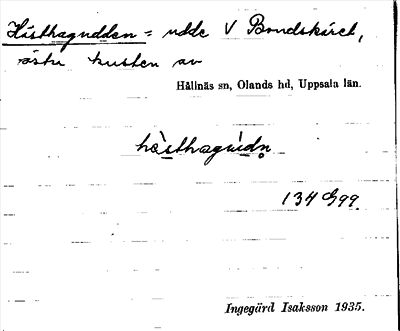 Hästhagudden = udde V Bondskäret,
östra kusten av
Hållnäs sn, Olands hd, Uppsala län.
hàsthagu̇dn̥
134 G 99.
Ingegärd Isaksson 1935.